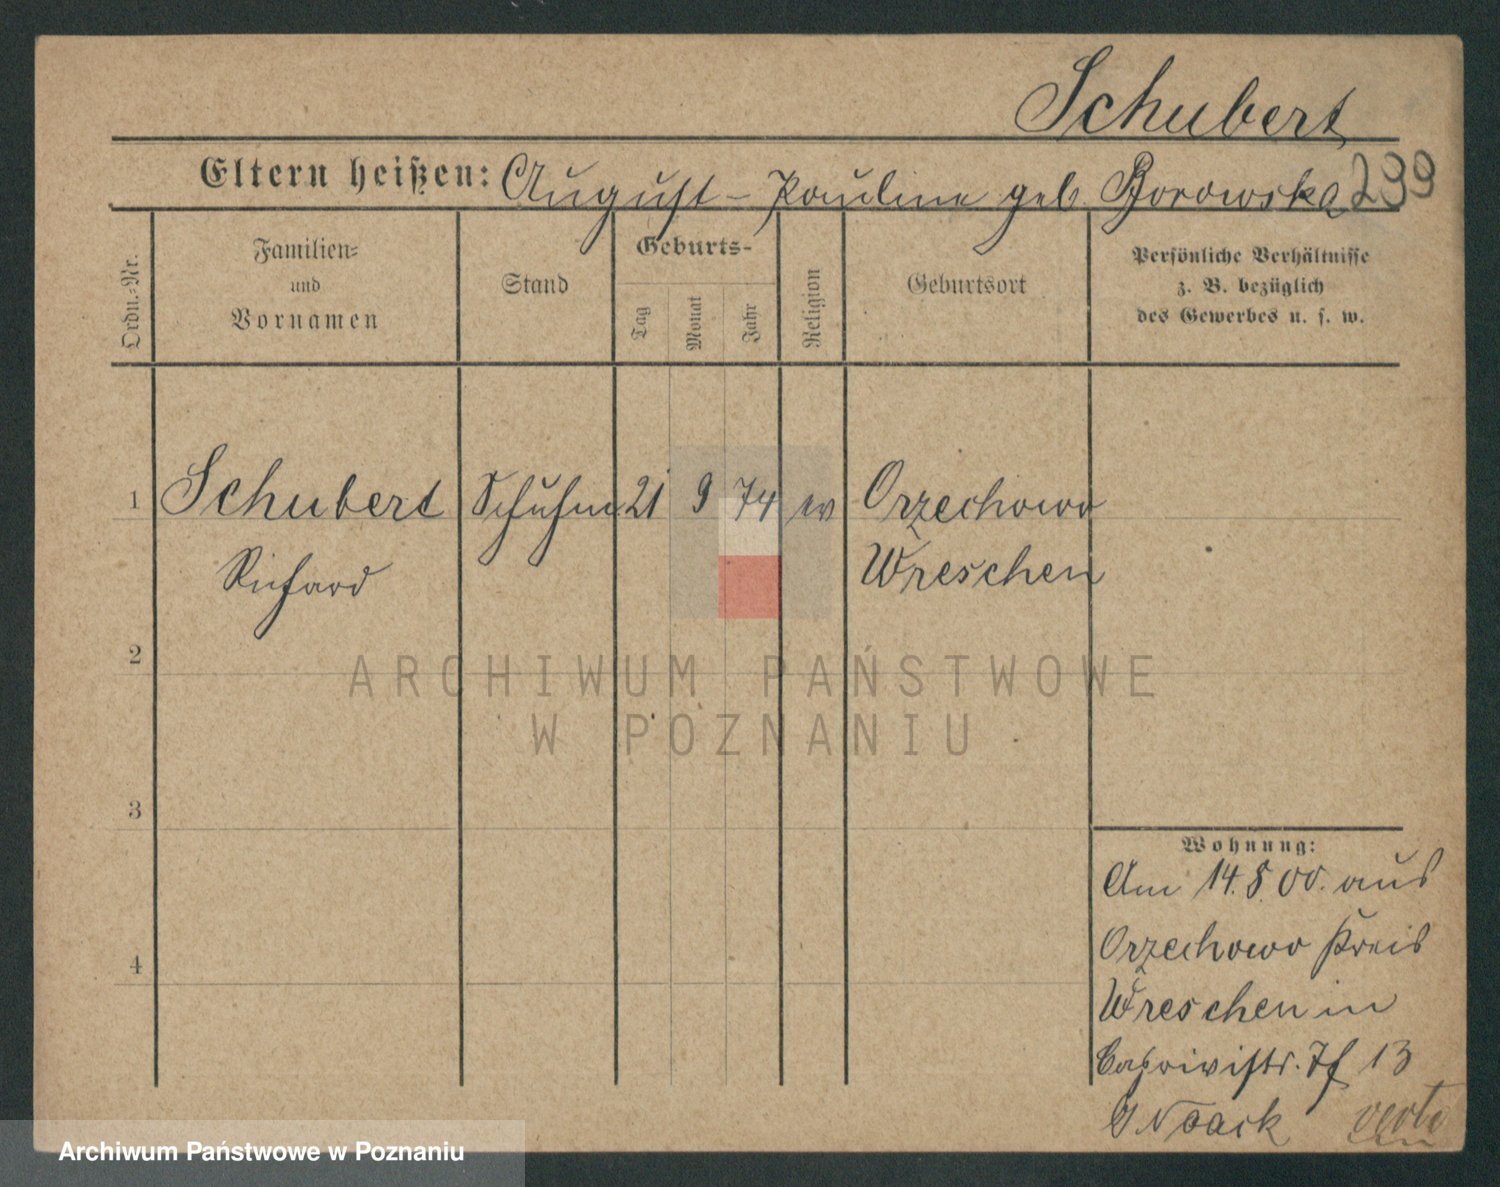 Schubert
Eltern heißen: August – Pauline geb. Borowska 299
Ordn.-Nr.
Familien-
und
Vornamen
Stand
Geburts-
Tag
Monat
Jahr
Religion
Geburtsort
Persönliche Verhältnisse
z. B. bezüglich
des Gewerbes u. s. w.
1 Schubert Schuhm 21 9 74 ev Orzechowo
Richard Wreschen
2
ARCHIWUM PAŃSTWOWE
W POZNANIU
3
Wohnung:
Am 14. 8. 00. aus
4 Orzechowo Kreis
Wreschen in
Caprivistr. 7f 13
Noack verte
Archiwum Państwowe w Poznaniu